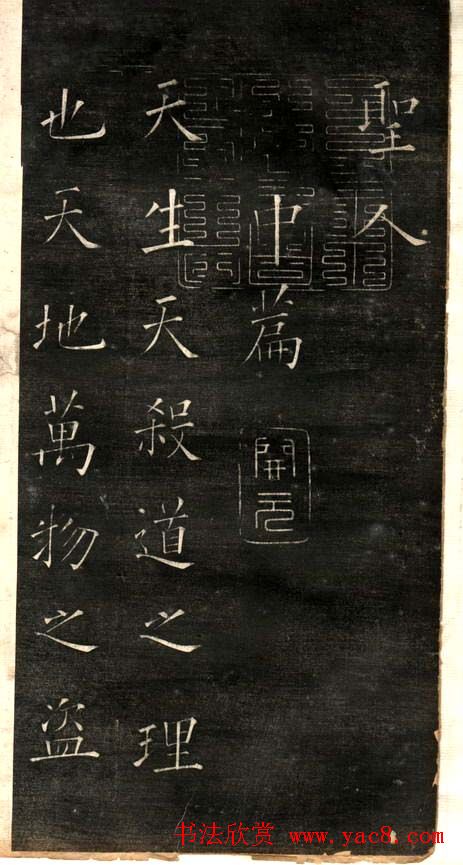 聖人
中篇
開元
天生天殺道之理
也天地萬物之盜
书法欣赏 www.yac8.com